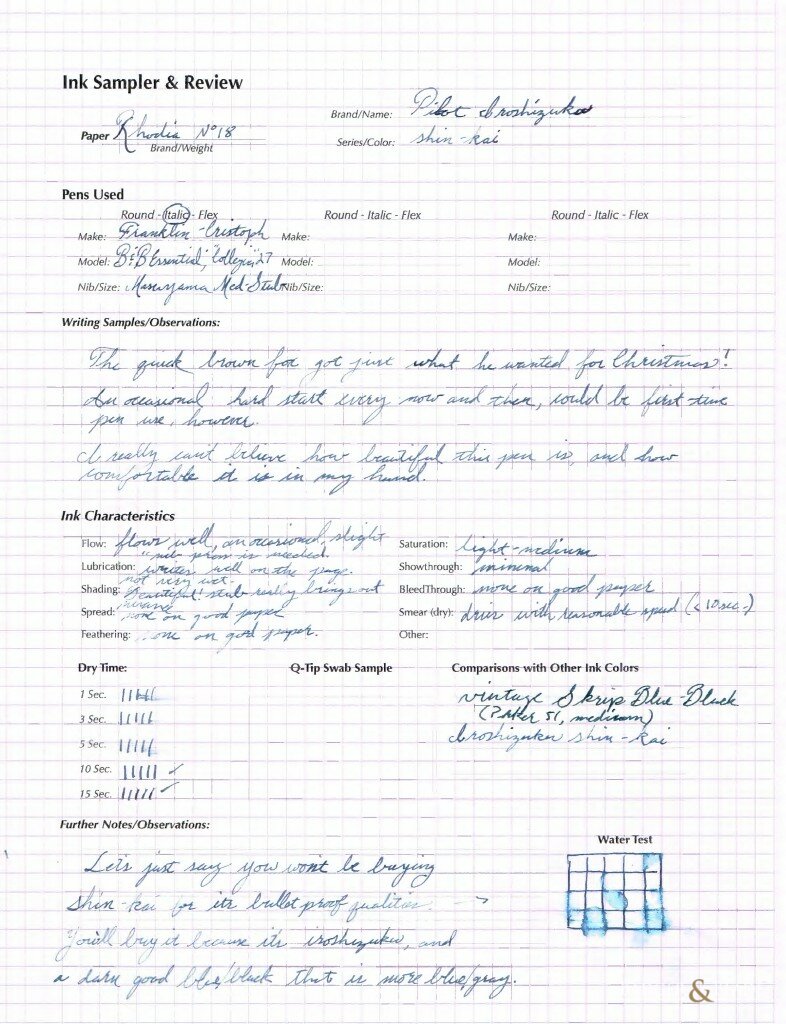 Ink Sampler & Review
Brand/Name: Pilot Iroshizuku
Paper Rhodia Nº18
Brand/Weight
Series/Color: shin-kai
Pens Used
Round - Italic - Flex Round - Italic - Flex Round - Italic - Flex
Make: Franklin-Cristoph Make: Make:
Model: B&B Essential, "Collegia" 27 Model: Model:
Nib/Size: Masuyama Med-Stub Nib/Size: Nib/Size:
Writing Samples/Observations:
The quick brown fox got just what he wanted for Christmas!
An occasional hard start every now and then, could be first-time
pen use, however.
I really can't believe how beautiful this pen is, and how
comfortable it is in my hand.
Ink Characteristics
Flow: flows well, an occasional, slight
"nib-press is needed.
Saturation: light-medium
Lubrication: writes well on the page.
not very wet.
Showthrough: minimal
Shading: Beautiful! stub really brings out
nuance
BleedThrough: none on good paper
Spread: none on good paper
Smear (dry): dries with reasonable speed (<10 sec-)
Feathering: none on good paper.
Other:
Dry Time: Q-Tip Swab Sample Comparisons with Other Ink Colors
1 Sec.
3 Sec.
5 Sec.
10 Sec. ✓
15 Sec. ✓
vintage Skrip Blue-Black
(Parker 51, medium)
Iroshizuku shin-kai
Further Notes/Observations:
Water Test
Let's just say you won't be buying
Shin-kai for its bulletproof qualities. →
You'll buy it because it's iroshizuku, and
a darn good blue/black that is more blue/gray.
&